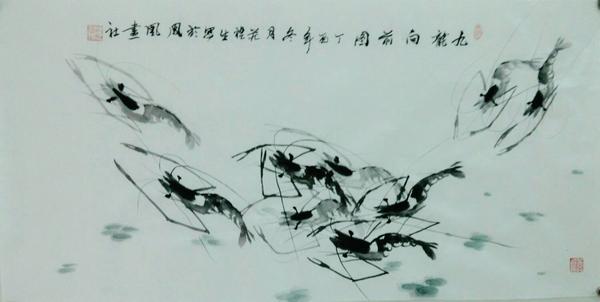 九龍向前图丁酉年冬月花禮生写於凤凰畫社